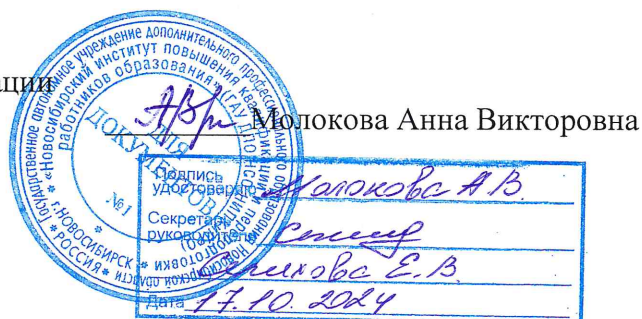 ации
Молокова Анна Викторовна
Государственное автономное учреждение дополнительного профессионального образования Новосибирской области
«Новосибирский институт повышения квалификации и переподготовки работников образования» (ГАУ ДПО НСО
* г.НОВОСИБИРСК * РОССИЯ *
ДЛЯ
ДОКУМЕНТОВ
№1
Подпись
удостоверяю Молокова А.В.
Секретарь
руководителя
Е.В.
Дата 17.10.2024